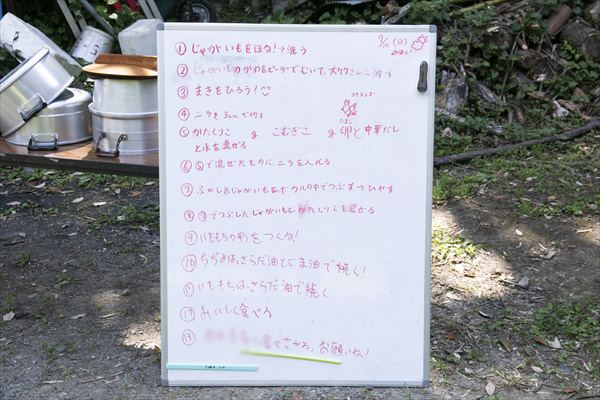 7/10(日)
① じゃがいもをほる!→洗う
② じゃがいものかわをピーラーでむいて、大ククさんに渡す
③ まきをひろう!
④ ニラを3cmで切る
コケコッコー
たまご
⑤ かたくりこ g こむぎこ g 卵と中華だし
と水を混ぜる
⑥ ⑤で混ぜたものに、ニラを入れる
⑦ ふかしたじゃがいもをボウルの中でつぶす→ひやす
⑧ ⑦でつぶしたじゃがいもと、かたくりこを混ぜる
⑨ いももちの形をつくる!
⑩ ちぢみは、さらだ油とごま油で焼く!
⑪ いももちは、さらだ油で焼く
⑫ おいしく食べる
⑬ させる。お願いね!